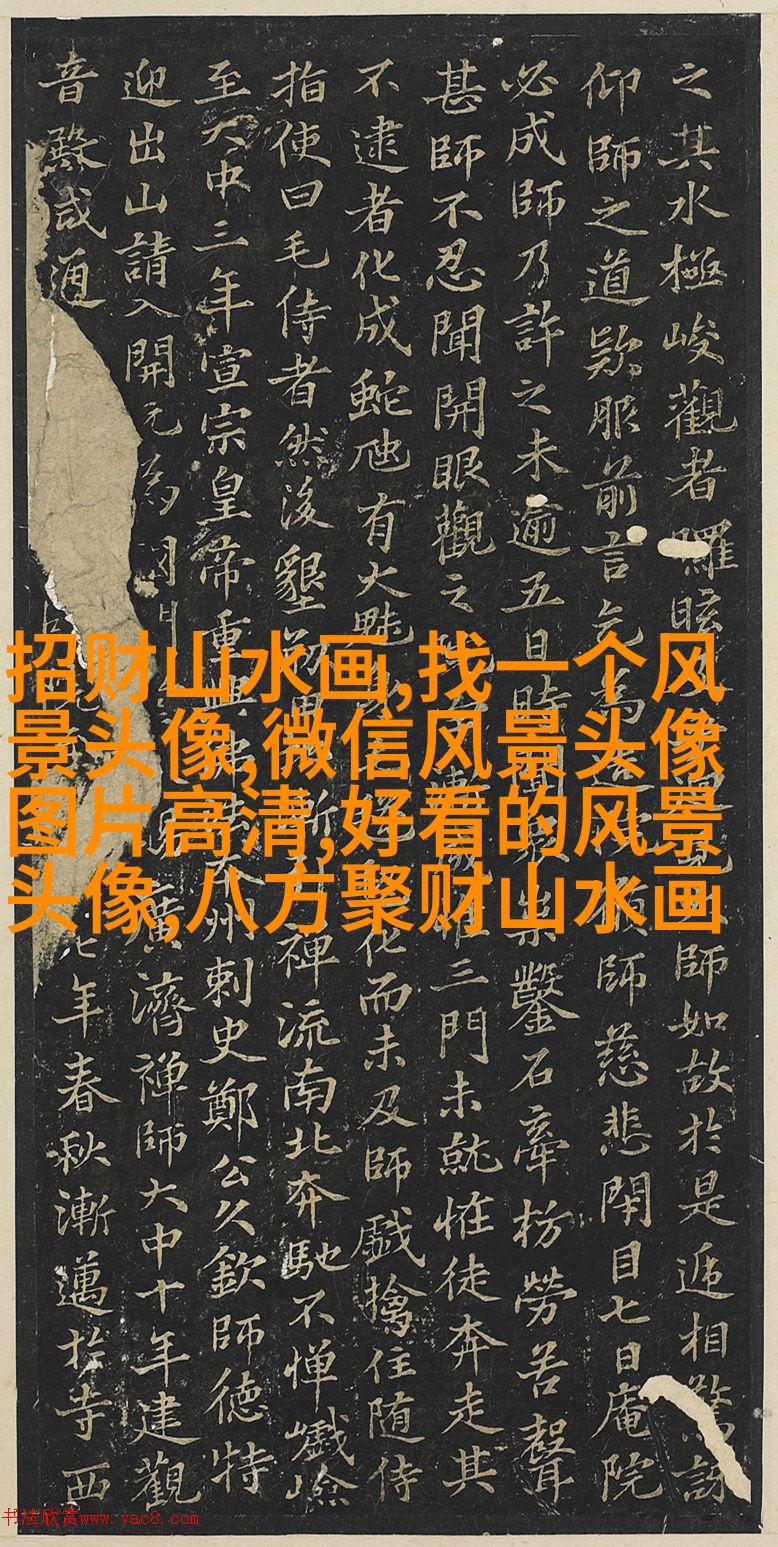 招财山水画,找一个风
景头像,微信风景头像
图片高清,好看的风景
头像,八方聚财山水画
之其水極峻觀者眩師如故於是遞相驚訝
仰師之道歎服前言乞為願師慈悲閉目七日庵院
必成師乃許之未逾五日時聞樂鑿石牽枋勞苦聲
甚師不忍聞開眼觀之三門未就恠徒奔走其
不逮者化成蛇虺有大魅化而未及師戲擒住随侍
指使曰毛侍者然後墾禪流南北奔馳不憚巇嶮
至大中三年宣宗皇帝重興州刺史鄭公久欽師德特
迎出山請入開元為國廣濟禪師大中十年建觀
音殿咸通七年春秋漸邁於寺西
书法欣赏www.yac8.com